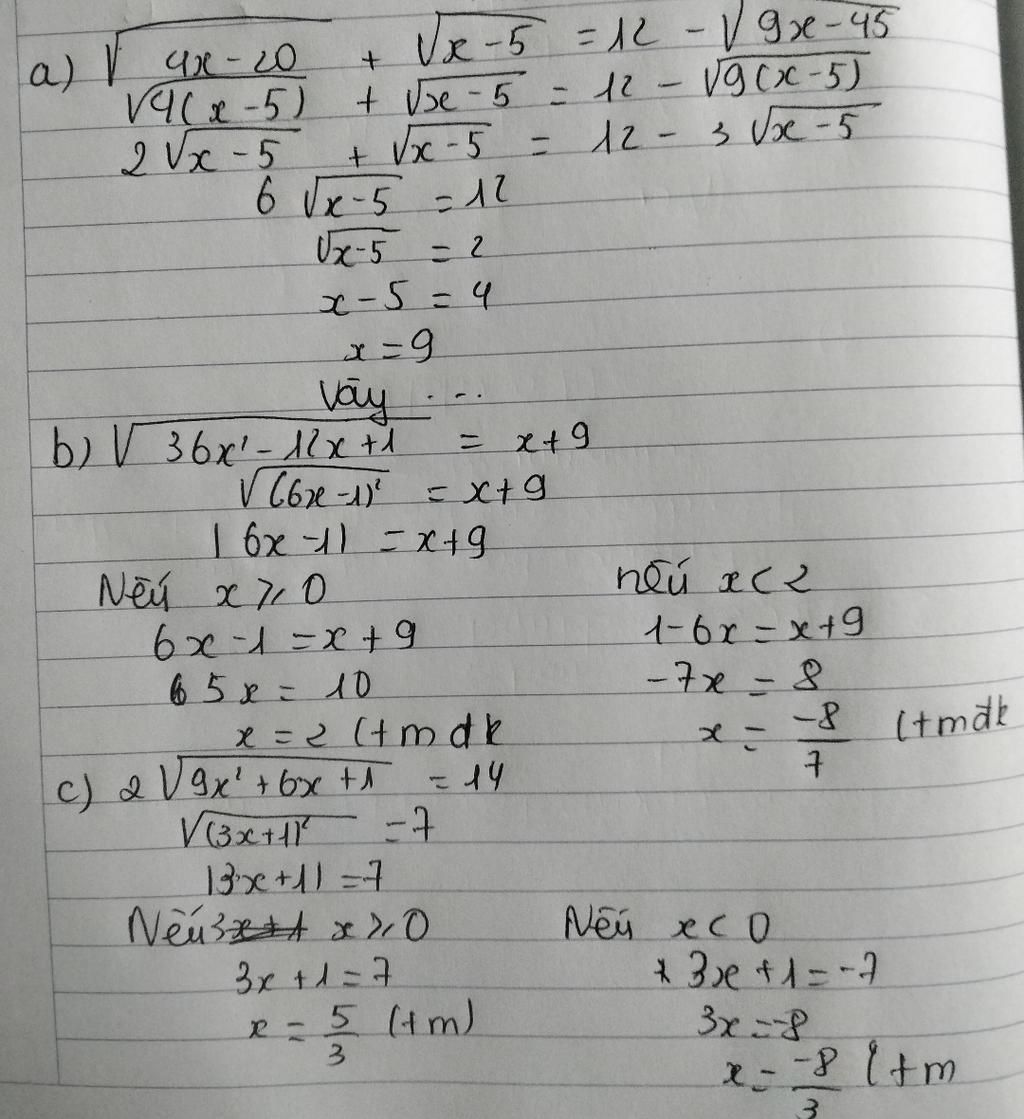 a) √(4x-20) + √(x-5) = 12 - √(9x-45)
√(4(x-5)) + √(x-5) = 12 - √(9(x-5))
2√(x-5) + √(x-5) = 12 - 3√(x-5)
6√(x-5) = 12
√(x-5) = 2
x-5 = 4
x = 9
Vậy ...
b) √(36x²-12x+1) = x+9
√((6x-1)²) = x+9
|6x-1| = x+9
Nếu x ≥ 0
6x-1 = x+9
5x = 10
x = 2 (tmđk
nếu x < 2
1-6x = x+9
-7x = 8
x = -8/7 (tmđk
c) 2√(9x²+6x+1) = 14
√((3x+1)²) = 7
|3x+1| = 7
Nếu x ≥ 0
3x+1 = 7
x = 5/3 (tm)
Nếu x < 0
3x+1 = -7
3x = -8
x = -8/3 (tm